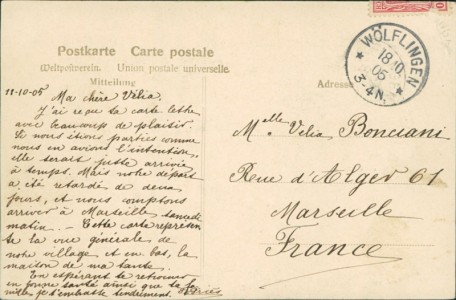 Postkarte Carte postale
Weltpostverein. Union postale universelle.
Mitteilung
Adresse
WÖLFLINGEN
18.10.
05
3-4N.
11-10-05 Ma chère Vélia.
J'ai reçu ta carte lettre
avec beaucoup de plaisir.
Si nous étions parties comme
nous en avions l'intention,
elle serait juste arrivée
à temps. Mais notre départ
a été retardé de deux
jours, et nous comptons
arriver à Marseille samedi
matin. — Cette carte représente
te la vue générale de
notre village et en bas, la
maison de ma tante.
En espérant te retrouver
en bonne santé ainsi que ta fa-
mille je t'embrasse tendrement.
Melle Vélia Bonciani
Rue d'Alger 61
Marseille
France